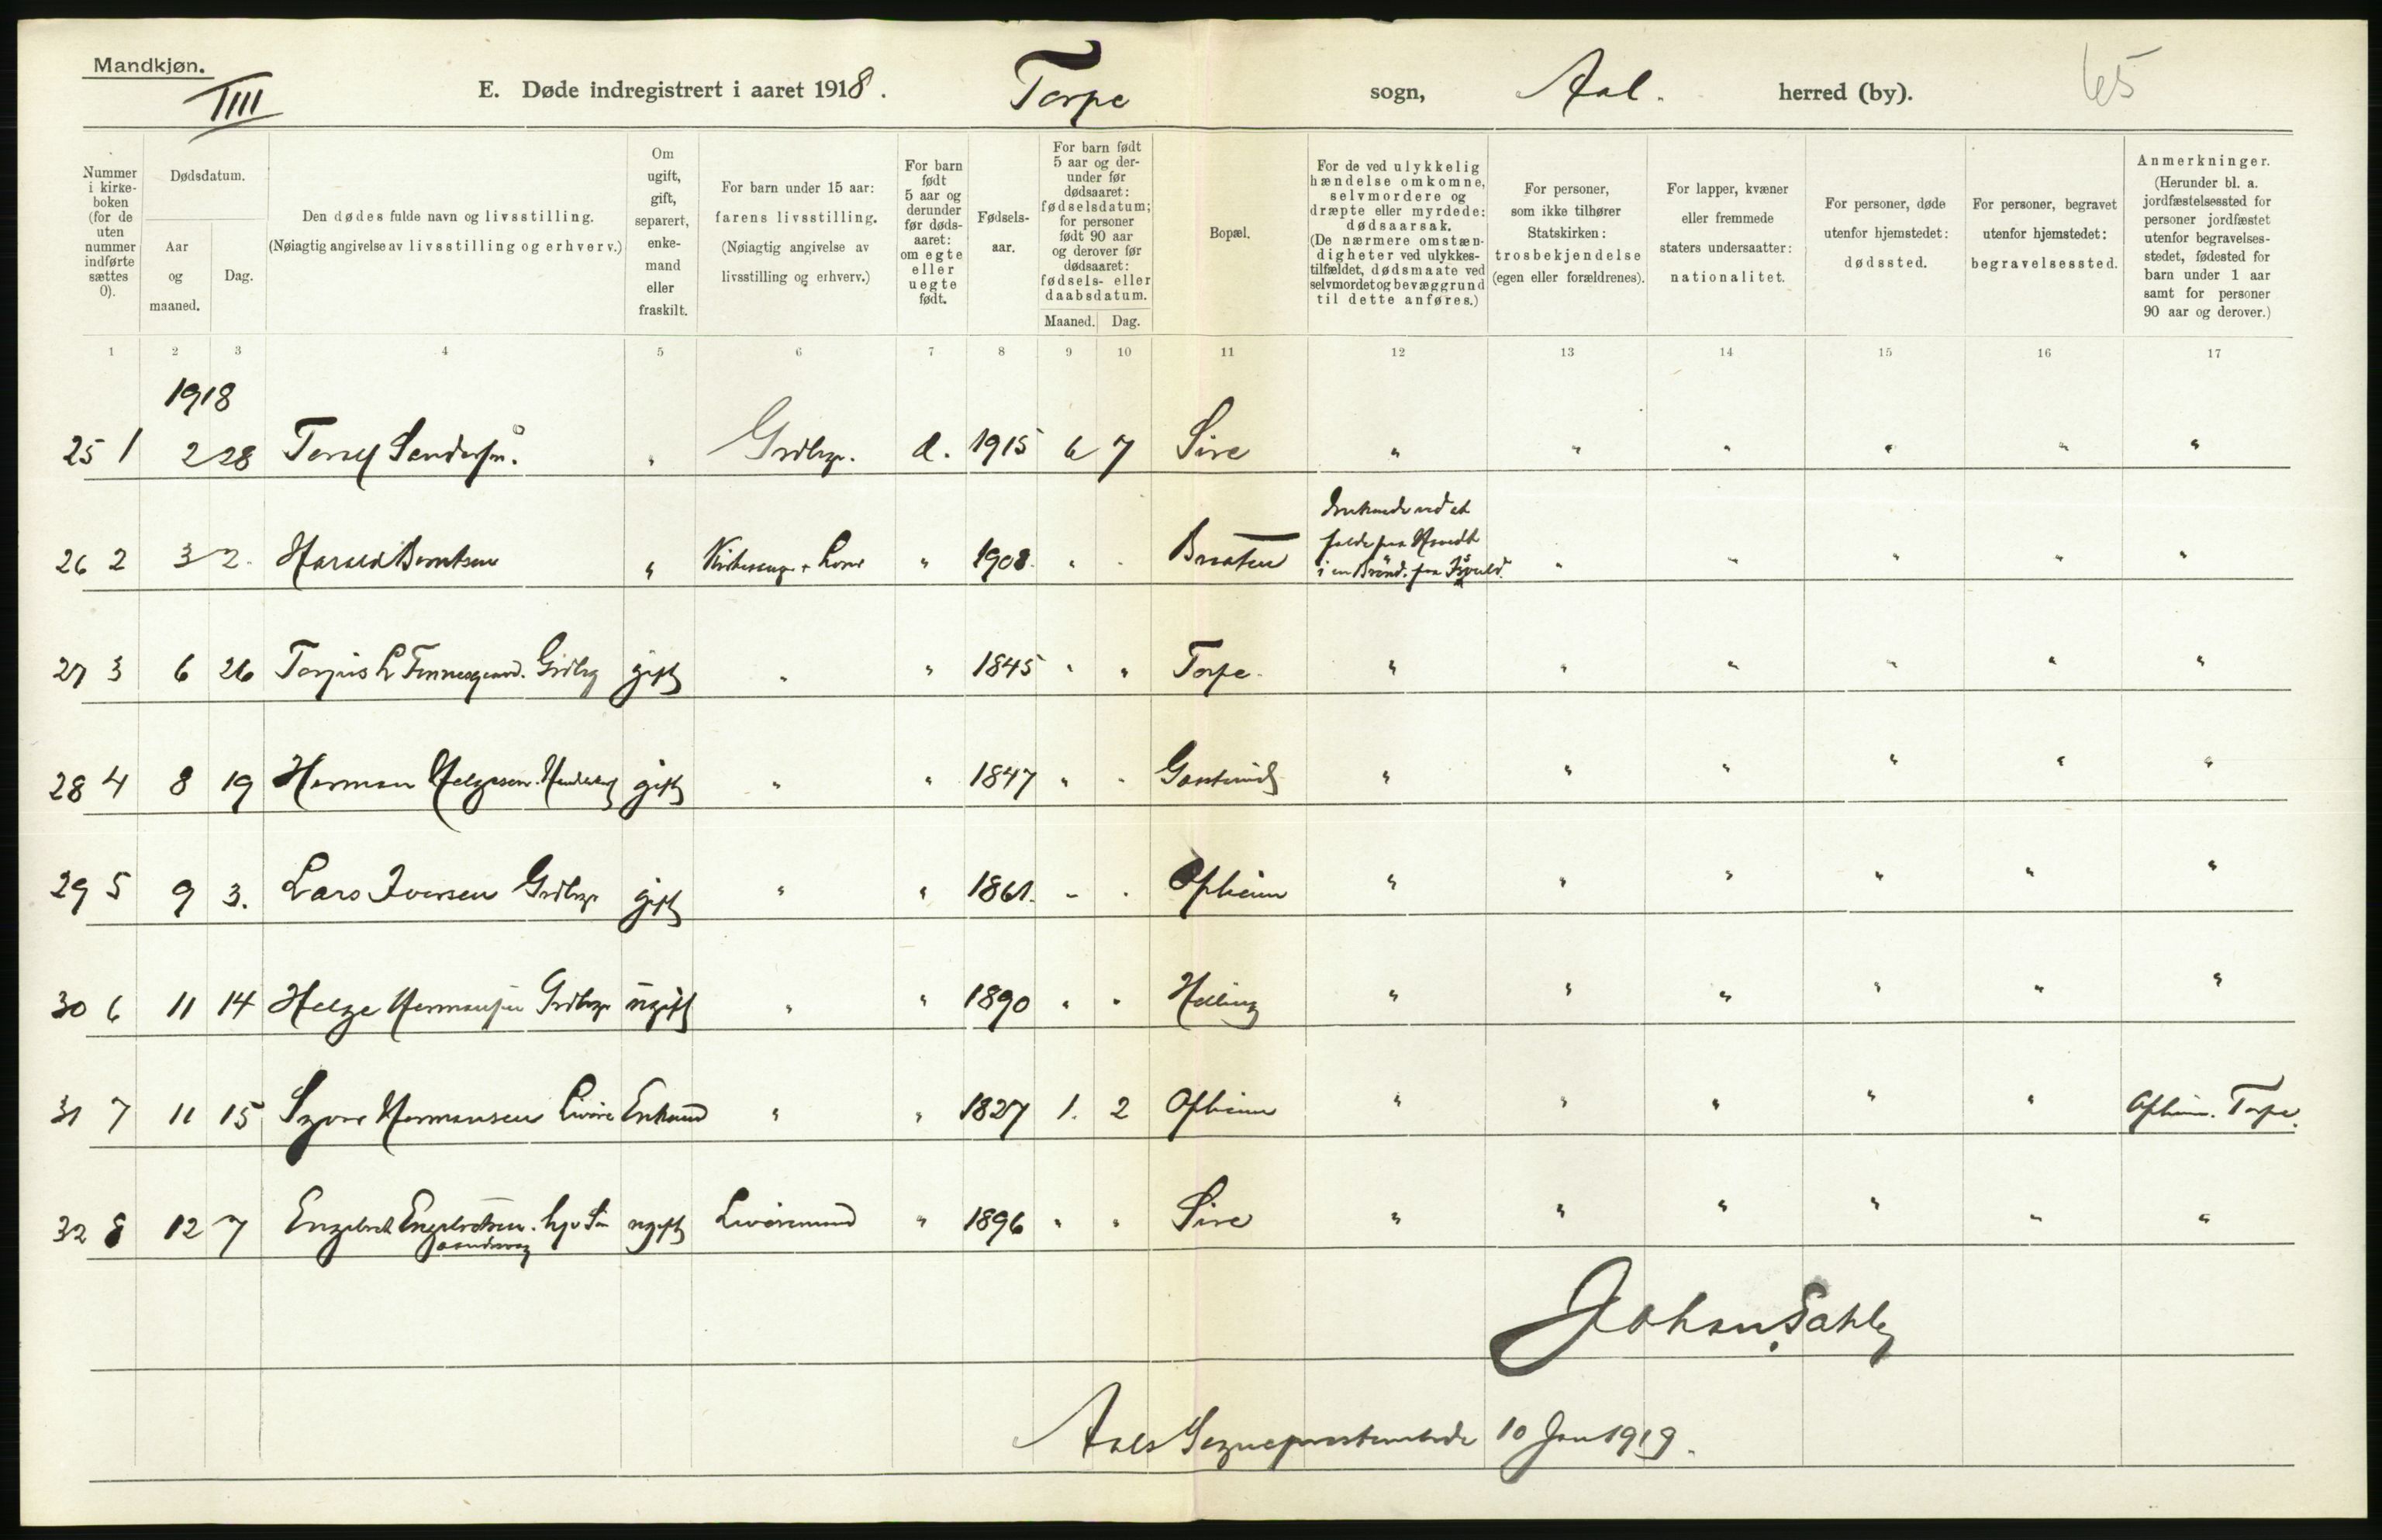 Mandkjøn.
TIII
E. Døde indregistrert i aaret 1918. Torpe sogn, Aal. herred (by). 65
Nummer i kirkeboken (for de uten nummer indførte sættes 0).
Dødsdatum.
Aar og maaned.
Dag.
Den dødes fulde navn og livsstilling.
(Nøiagtig angivelse av livsstilling og erhverv.)
Om ugift, gift, separert, enkemand eller fraskilt.
For barn under 15 aar: farens livsstilling. (Nøiagtig angivelse av livsstilling og erhverv.)
For barn født 5 aar og derunder før dødsaaret: om egte eller uegte født.
Fødselsaar.
For barn født 5 aar og derunder før dødsaaret: fødselsdatum; for personer født 90 aar og derover før dødsaaret: fødsels- eller daabsdatum.
Maaned. Dag.
Bopæl.
For de ved ulykkelig hændelse omkomne, selvmordere og dræpte eller myrdede: dødsaarsak. (De nærmere omstændigheter ved ulykkestilfældet, dødsmaate ved selvmordet og bevæggrund til dette anføres.)
For personer, som ikke tilhører Statskirken: trosbekjendelse (egen eller forældrenes).
For lapper, kvæner eller fremmede staters undersaatter: nationalitet.
For personer, døde utenfor hjemstedet: dødssted.
For personer, begravet utenfor hjemstedet: begravelsessted.
Anmerkninger. (Herunder bl. a. jordfæstelsessted for personer jordfæstet utenfor begravelsesstedet, fødested for barn under 1 aar samt for personer 90 aar og derover.)
1 2 3 4 5 6 7 8 9 10 11 12 13 14 15 16 17
1918
25 1 2 28 " Grdbrgr. 1915 6 7 Sire " " " " " "
26 2 3 2. Harald Berntsen " " 1908. " " Braaten ved et i en Brønd. " " " " "
27 3 6 26 Torjus L Finnesgaard. Grdbrg gift " " 1845 " " Torpe. " " " " " "
28 4 8 19 Herman Helgesen. gift " " 1847 " " " " " " " "
29 5 9 3. Lars Iversen Grdbrgr gift " " 1861. " " Opheim " " " " " "
30 6 11 14 Helge Hermansen Grdbrgr ugift " " 1890 " " " " " " " "
31 7 11 15 Hermansen Enkemd " " 1827 1. 2 Opheim " " " " " Opheim. Torpe.
32 8 12 7 Engebret Engebretsen. ugift " 1896 " " Sire " " " " " "
Johan
Aals Sogneprestembede 10 Jan 1919.